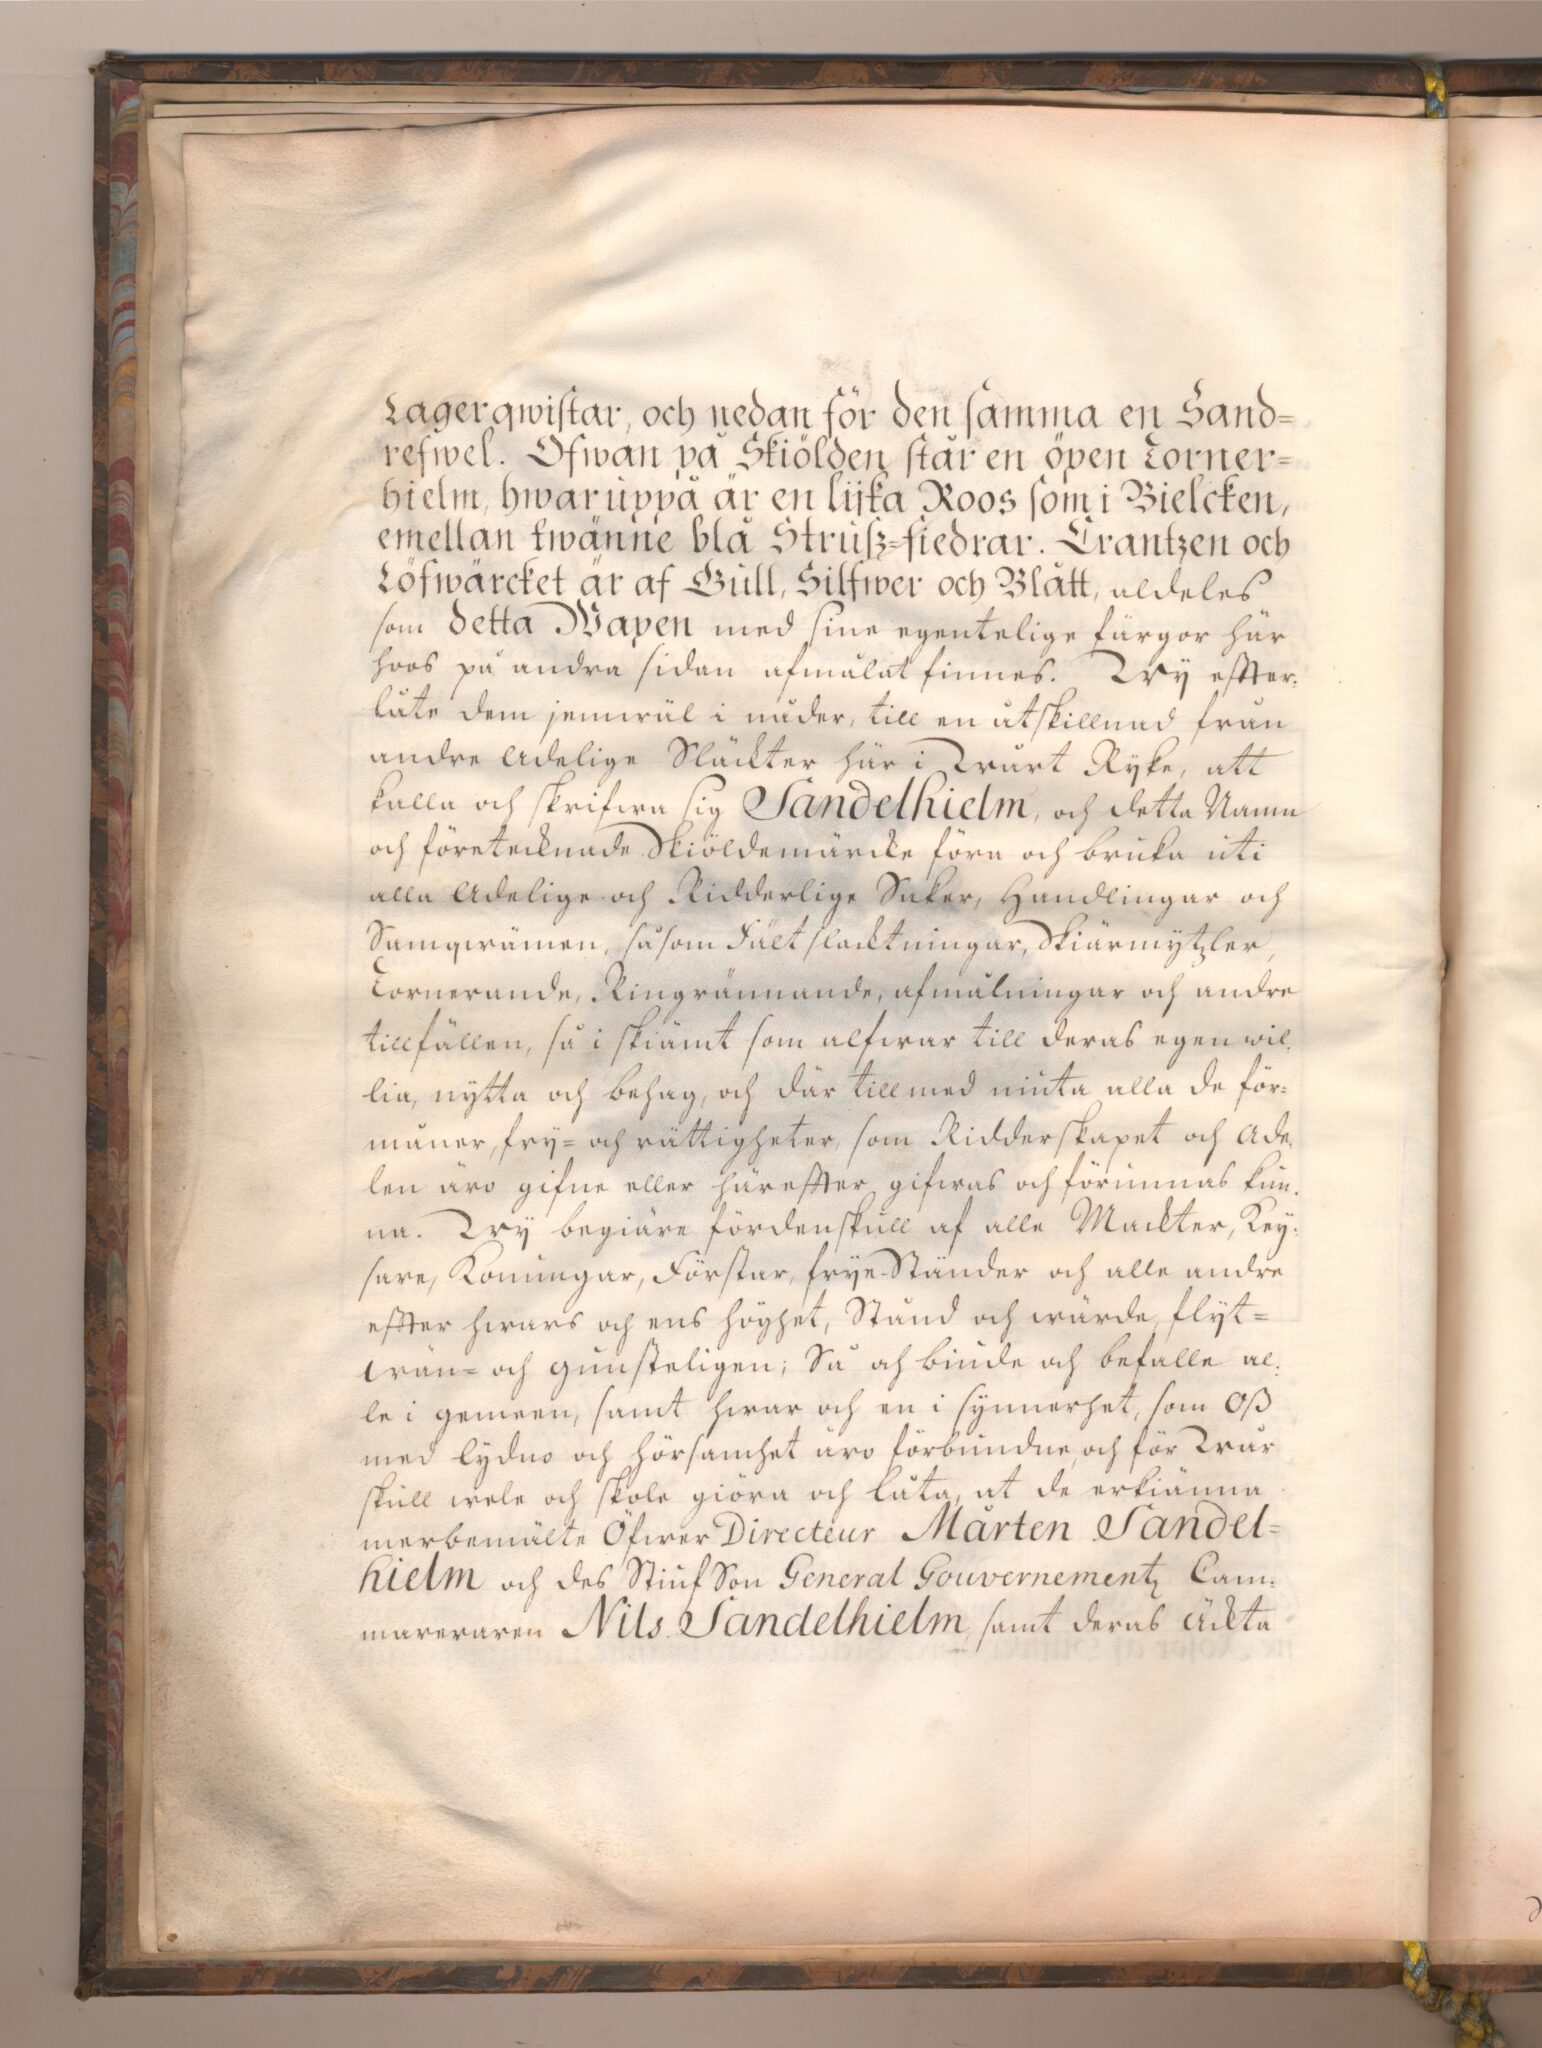 Lagerqwistar, och nedan för den samma en Sand-
refwel. Ofwan på Skiölden står en öpen Torner-
hielm, hwaruppå är en lijka Roos som i Bielcken,
emellan twänne blå Strusz-fiedrar. Crantzen och
Löfwärcket är af Gull, Silfwer och Blått, aldeles
som detta Wapen med sine egentelige färgor här
hoos på andra sidan afmålat finnes. Wy effter-
låte dem jemwäl i nåder, till en åtskillnad från
andre Adelige Släckter här i Wårt Ryke, att
kalla och skrifwa sig Sandelhielm, och detta Namn
och företecknade Skiöldemärcke föra och bruka uti
alla Adelige och Ridderlige Saker, Handlingar och
Samqwämen, såsom Fältslachtningar, Skiärmytzler,
Tornerande, Ringrännande, afmålningar och andre
tillfällen, så i skiämt som alfwar till deras egen wil-
lia, nytta och behag, och där till med niuta alla de för-
måner, fry- och rättigheter, som Ridderskapet och Ade-
len äro gifne eller häreffter gifwas och förunnas kun-
na. Wy begiäre fördenskull af alle Mackter, Key-
sare, Konungar, Förstar, frye Ständer och alle andre
effter hwars och ens höghet, Stånd och wärde, flyt-
wän- och gunsteligen; Så ok biude och befalle al-
le i gemeen, samt hwar och en i synnerhet, som Oß
med lydno och hörsamhet äro förbundne, och för Wår
skull wele och skole giöra och låta, at de erkiänna
merbemälte Öfwer Directeur Mårten Sandel-
hielm och des Stiuf Son General Gouvernementz Cam-
mareraren Nils Sandelhielm, samt deras Äckta